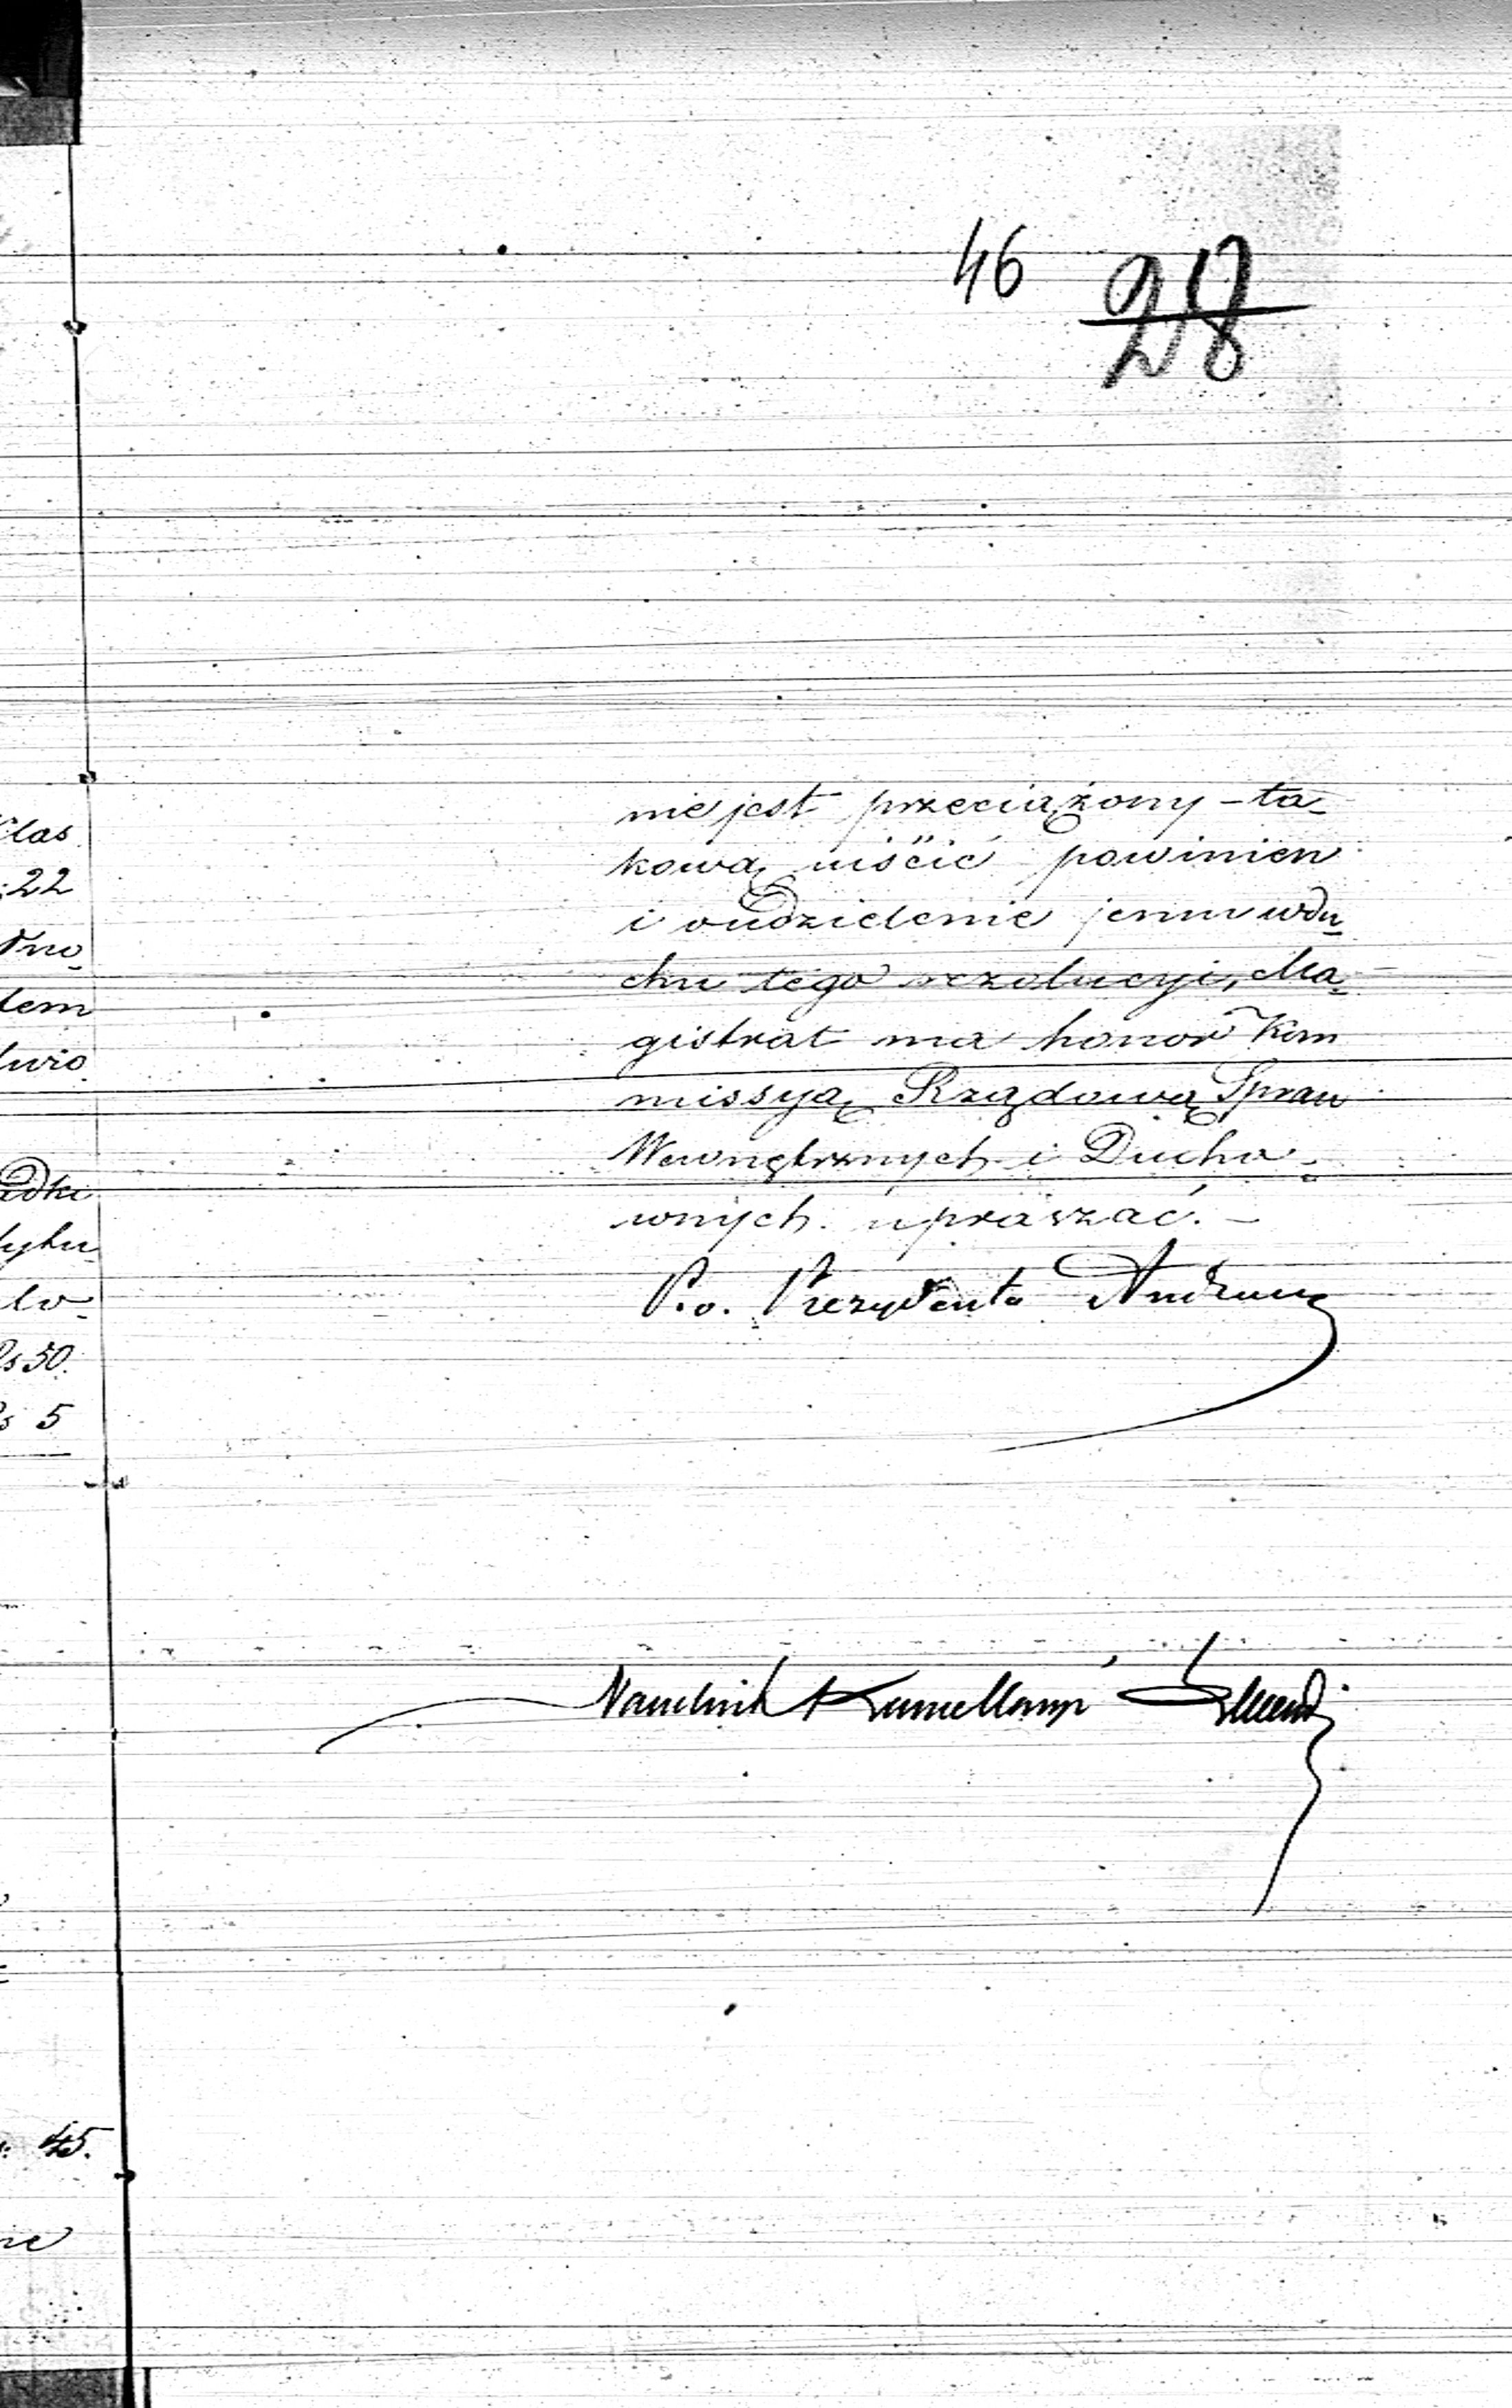 46 28
nie jest przeciążony – ta-
kową uiścić powinien
i oudzielenie jemu wdu-
chu tego rezolucyi, Ma-
gistrat ma honor Kom
missyą Rządową Spraw
Wewnętrznych i Ducho-
wnych upraszać. –
P.o. Prezydenta
Naczelnik Kancellaryi
las
22
dno-
lem
dki
lo-
Rs 50.
Rs 5
45.